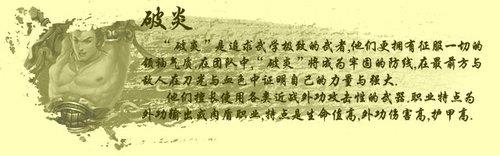 破炎
“破炎”是追求武学极致的武者,他们更拥有征服一切的
领袖气质,在团队中,“破炎”将成为牢固的防线,在最前方与
敌人在刀光与血色中证明自己的力量与强大.
他们擅长使用各类近战外功攻击性的武器,职业特点为
外功输出或肉盾职业,特点是生命值高,外功伤害高,护甲高.